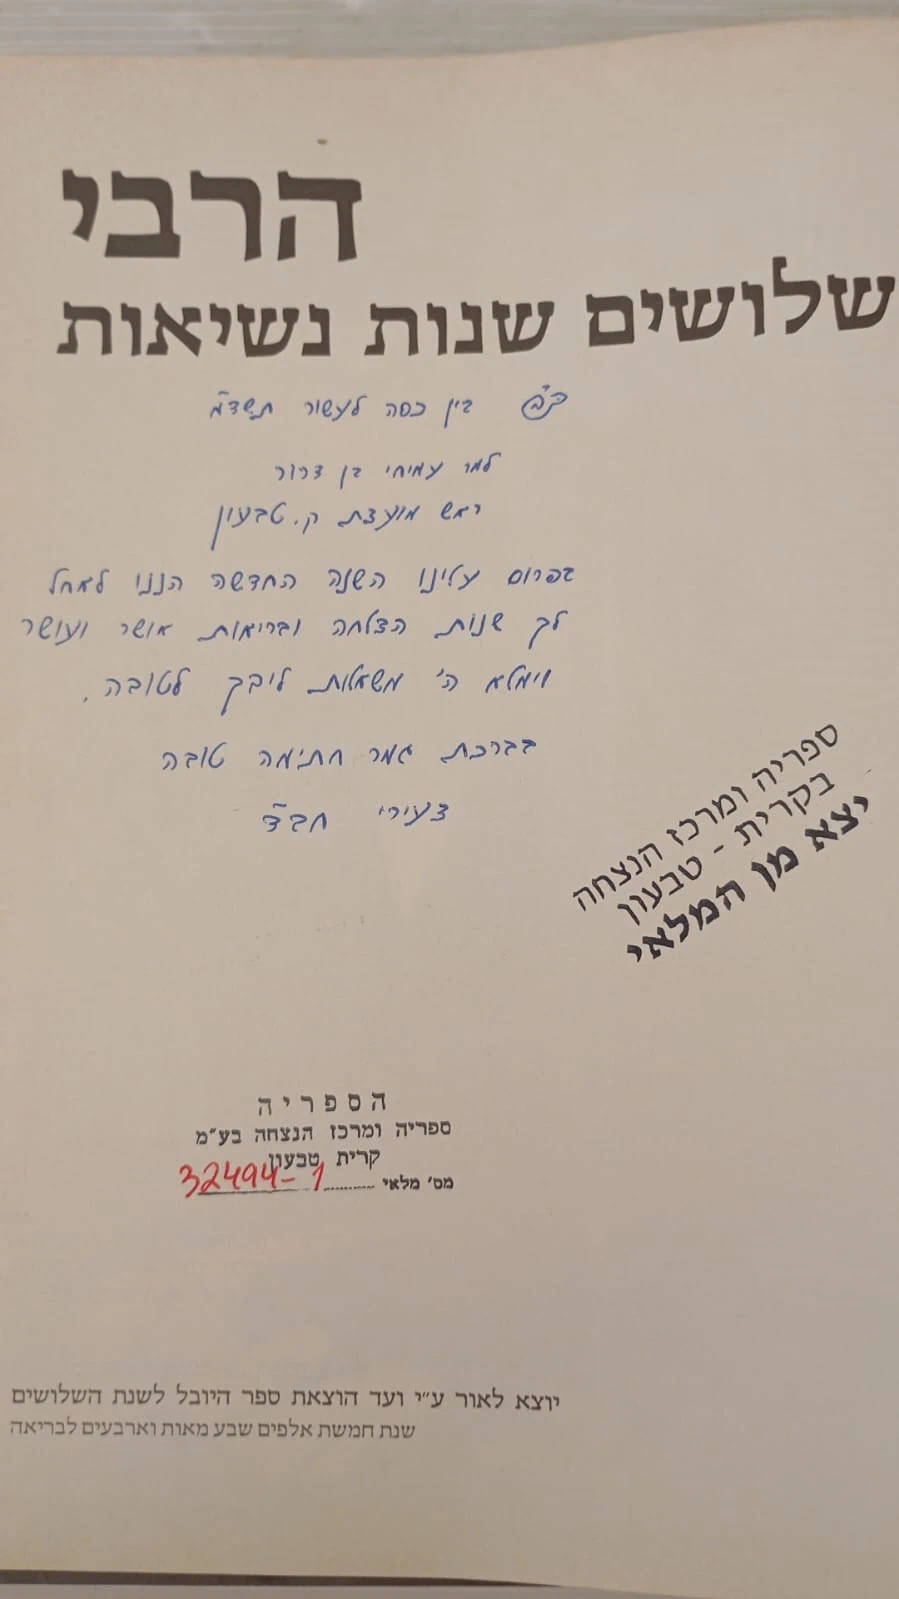 הרבי
שלושים שנות נשיאות
ב"ה בין כסה לעשור תשד"מ
למר עמיחי בן דרור
ראש מועצת ק. טבעון
בפרוס עלינו השנה החדשה הננו לאחל
לך שנות הצלחה ובריאות אושר ועושר
וימלא ה' משאלות ליבך לטובה.
בברכת גמר חתימה טובה
צעירי חב"ד
ספריה ומרכז הנצחה
בקרית - טבעון
יצא מן המלאי
הספריה
ספריה ומרכז הנצחה בע"מ
קרית טבעון
מס' מלאי 32494-1
יוצא לאור ע"י ועד הוצאת ספר היובל לשנת השלושים
שנת חמשת אלפים שבע מאות וארבעים לבריאה